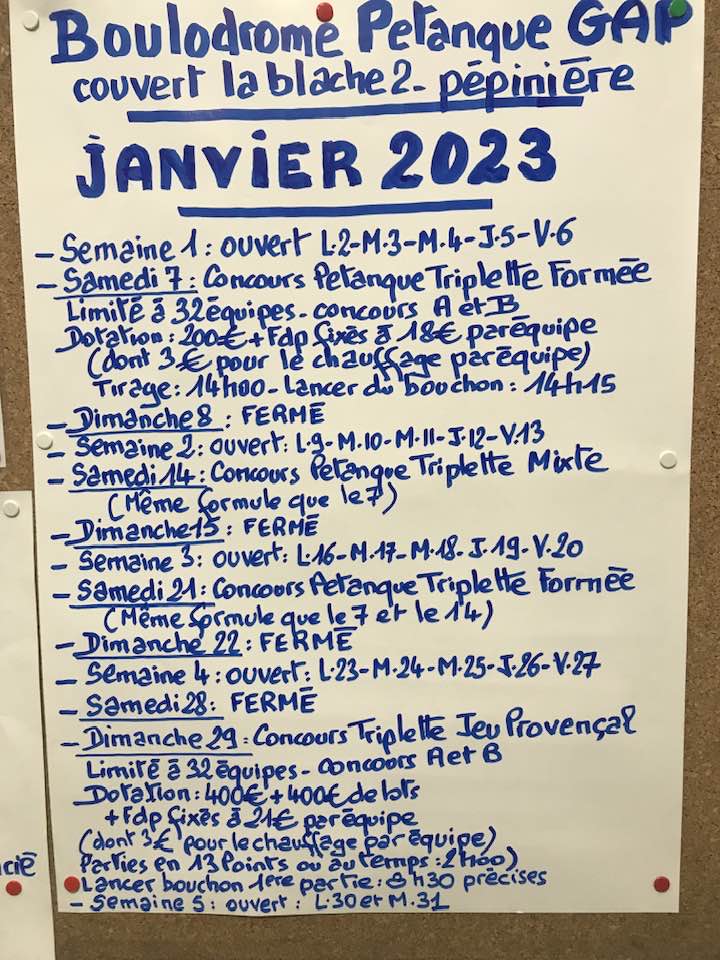 Boulodrome Petanque GAP
couvert la blache 2 - pépinière
JANVIER 2023
- Semaine 1 : ouvert L.2-M.3-M.4-J.5-V.6
- Samedi 7 : Concours Petanque Triplette Formée
Limité à 32 équipes - concours A et B
Dotation : 200€ + Fdp fixés à 18€ par équipe
(dont 3€ pour le chauffage par équipe)
Tirage : 14h00 - Lancer du bouchon : 14h15
- Dimanche 8 : FERMÉ
- Semaine 2 : ouvert : L.9-M.10-M.11-J.12-V.13
- Samedi 14 : Concours Petanque Triplette Mixte
(Même formule que le 7)
- Dimanche 15 : FERMÉ
- Semaine 3 : ouvert : L.16-M.17-M.18-J.19-V.20
- Samedi 21 : Concours Petanque Triplette Formée
(Même formule que le 7 et le 14)
- Dimanche 22 : FERMÉ
- Semaine 4 : ouvert : L.23-M.24-M.25-J.26-V.27
- Samedi 28 : FERMÉ
- Dimanche 29 : Concours Triplette Jeu Provençal
Limité à 32 équipes - Concours A et B
Dotation : 400€ + 400€ de lots
+ Fdp fixés à 21€ par équipe
(dont 3€ pour le chauffage par équipe)
Parties en 13 Points ou au temps : 2h00)
Lancer bouchon 1ère partie : 8h30 précises
- Semaine 5 : ouvert : L.30 et M.31
cié